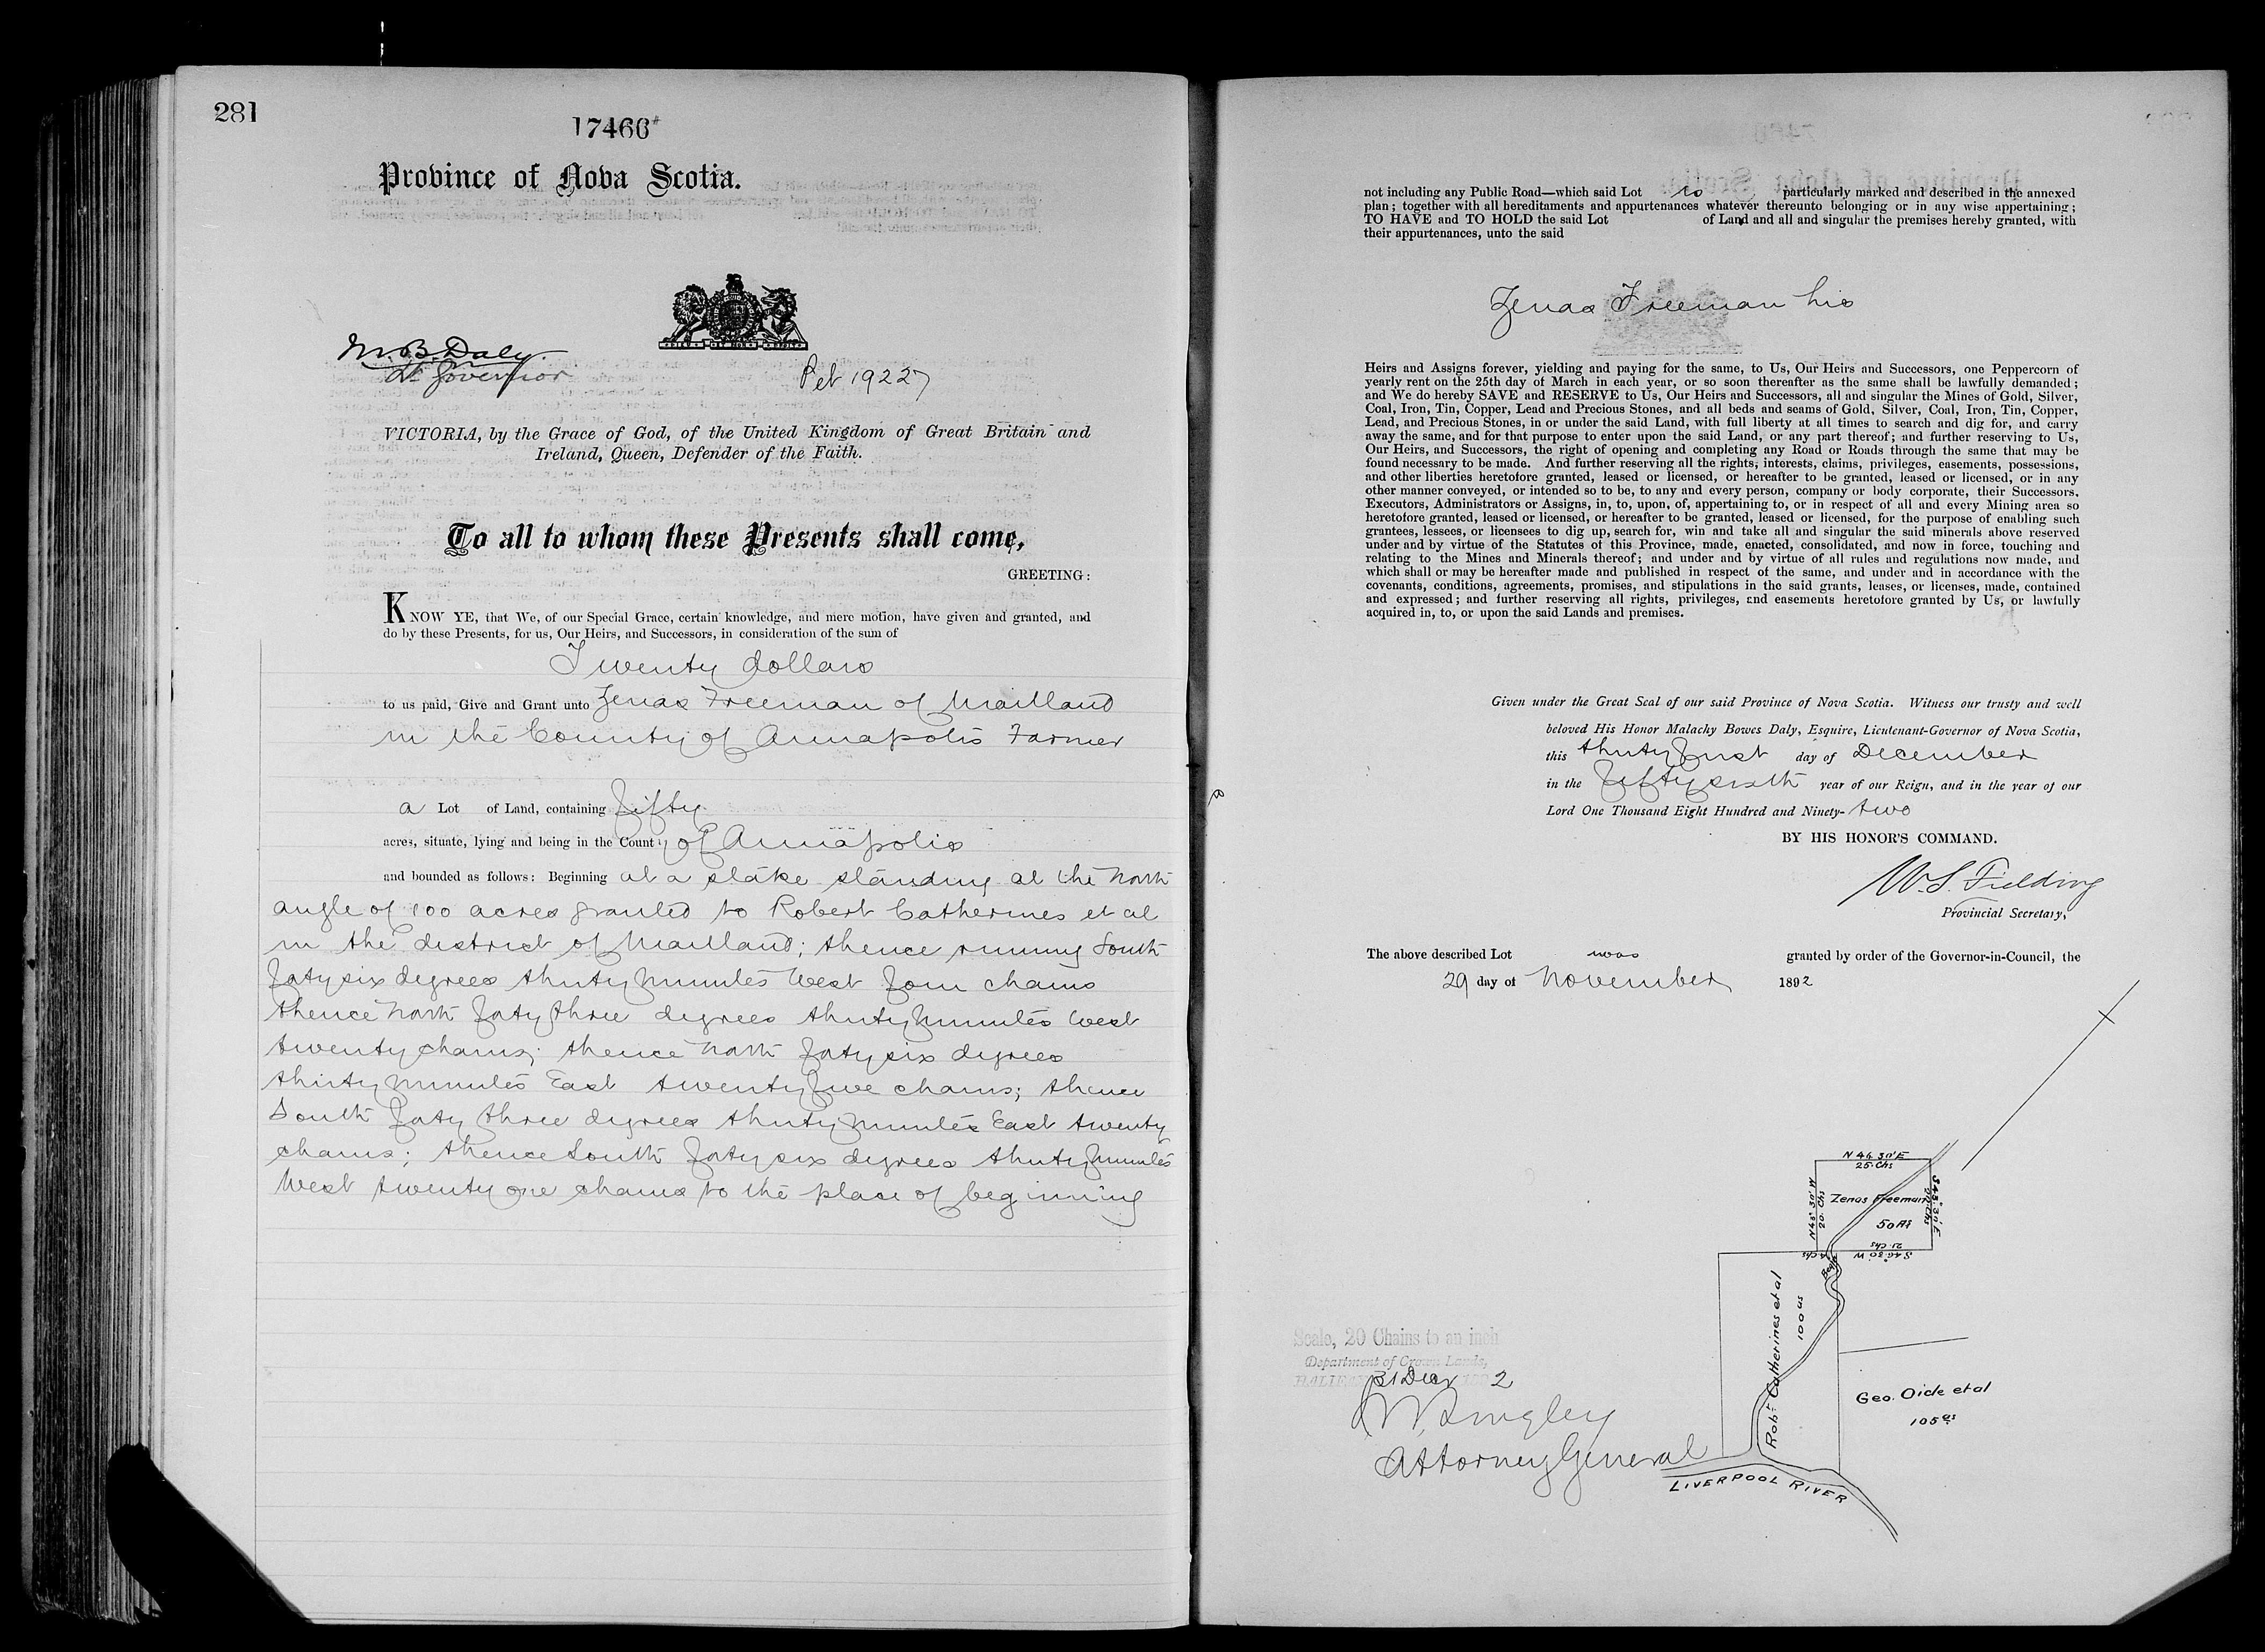 281
17466
Province of Nova Scotia.
M.B. Daly
Lt Governor
Pet 19227
VICTORIA, by the Grace of God, of the United Kingdom of Great Britain and
Ireland, Queen, Defender of the Faith.
To all to whom these Presents shall come,
GREETING:
KNOW YE, that We, of our Special Grace, certain knowledge, and mere motion, have given and granted, and
do by these Presents, for us, Our Heirs, and Successors, in consideration of the sum of
Twenty dollars
to us paid, Give and Grant unto Zenas Freeman of Maitland
in the County of Annapolis Farmer
a Lot of Land, containing fifty
acres, situate, lying and being in the County of Annapolis
and bounded as follows: Beginning at a stake standing at the North
angle of 100 acres granted to Robert Catherines et al
in the district of Maitland; thence running South
forty six degrees thirty minutes West four chains
thence North forty three degrees thirty minutes West
twenty chains; thence North forty six degrees
thirty minutes East twenty five chains; thence
South forty three degrees thirty minutes East twenty
chains; thence South forty six degrees thirty minutes
West twenty one chains to the place of beginning
not including any Public Road—which said Lot is particularly marked and described in the annexed
plan; together with all hereditaments and appurtenances whatever thereunto belonging or in any wise appertaining;
TO HAVE and TO HOLD the said Lot of Land and all and singular the premises hereby granted, with
their appurtenances, unto the said
Zenas Freeman his
Heirs and Assigns forever, yielding and paying for the same, to Us, Our Heirs and Successors, one Peppercorn of
yearly rent on the 25th day of March in each year, or so soon thereafter as the same shall be lawfully demanded;
and We do hereby SAVE and RESERVE to Us, Our Heirs and Successors, all and singular the Mines of Gold, Silver,
Coal, Iron, Tin, Copper, Lead and Precious Stones, and all beds and seams of Gold, Silver, Coal, Iron, Tin, Copper,
Lead, and Precious Stones, in or under the said Land, with full liberty at all times to search and dig for, and carry
away the same, and for that purpose to enter upon the said Land, or any part thereof; and further reserving to Us,
Our Heirs, and Successors, the right of opening and completing any Road or Roads through the same that may be
found necessary to be made. And further reserving all the rights, interests, claims, privileges, easements, possessions,
and other liberties heretofore granted, leased or licensed, or hereafter to be granted, leased or licensed, or in any
other manner conveyed, or intended so to be, to any and every person, company or body corporate, their Successors,
Executors, Administrators or Assigns, in, to, upon, of, appertaining to, or in respect of all and every Mining area so
heretofore granted, leased or licensed, or hereafter to be granted, leased or licensed, for the purpose of enabling such
grantees, lessees, or licensees to dig up, search for, win and take all and singular the said minerals above reserved
under and by virtue of the Statutes of this Province, made, enacted, consolidated, and now in force, touching and
relating to the Mines and Minerals thereof; and under and by virtue of all rules and regulations now made, and
which shall or may be hereafter made and published in respect of the same, and under and in accordance with the
covenants, conditions, agreements, promises, and stipulations in the said grants, leases, or licenses, made, contained
and expressed; and further reserving all rights, privileges, and easements heretofore granted by Us, or lawfully
acquired in, to, or upon the said Lands and premises.
Given under the Great Seal of our said Province of Nova Scotia. Witness our trusty and well
beloved His Honor Malachy Bowes Daly, Esquire, Lieutenant-Governor of Nova Scotia,
this thirty first day of December
in the fifty sixth year of our Reign, and in the year of our
Lord One Thousand Eight Hundred and Ninety-two
BY HIS HONOR'S COMMAND.
W.S. Fielding
Provincial Secretary,
The above described Lot was granted by order of the Governor-in-Council, the
29 day of November 1892
N 46 30' E
25 Chs
N 43° 30' W
20 Chs
Zenas Freeman
50 As
S 43° 30' E
20 Chs
21 Chs
S 46° 30' W
4 Chs
Robt. Catherines et al
100 as
Geo. Oick et al
105 as
LIVERPOOL RIVER
Scale, 20 Chains to an inch
Department of Crown Lands,
HALIFAX 31 Decr 2
Longley
Attorney General